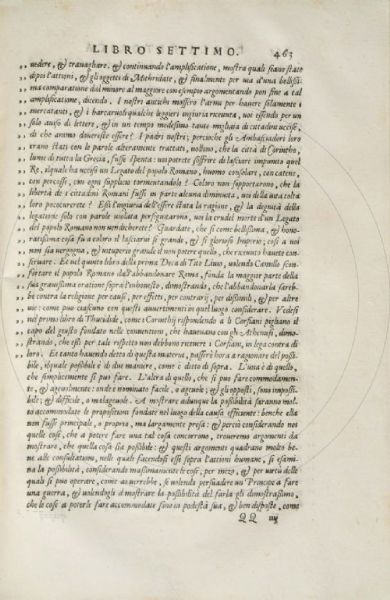 LIBRO SETTIMO. 463
„ uedere, & trauagliare. & continuando l'amplificatione, mostra quali siano state
„ dipoi l'attioni, & gli oggetti di Mithridate, & finalmente per uia d'una bellissi-
„ ma comparatione dal minore al maggiore con esempio argomentando pon fine a tal
„ amplificatione, dicendo. I nostri antichi mossero l'armi per hauere solamente i
„ mercatanti, & i barcaruoli qualche leggieri ingiuria riceuuta, uoi essendo per un
„ solo auiso di lettere, & in un tempo medesimo tante migliaia di cittadini uccisi,
„ di che animo douereste essere? I padri nostri; percioche gli Ambasciadori loro
„ erano stati con le parole alteramente trattati, uollono, che la città di Corintho,
„ lume di tutta la Grecia, fusse spenta: uoi potrete soffrire di lasciare impunito quel
„ Re, ilquale ha ucciso un Legato del popolo Romano, huomo consolare, con catene,
„ con percosse, con ogni supplicio tormentandolo? Coloro non sopportarono, che la
„ libertà de' cittadini Romani fusse in parte alcuna diminuita, uoi della uita tolta
„ loro poco curerete? Essi l'ingiuria dell'essere stata la ragione, & la dignità della
„ legatione solo con parole uiolata perseguitarono, uoi la crudel morte d'un Legato
„ del popolo Romano non uendicherete? Guardate, che si come bellissima, & hono-
„ ratissima cosa fu a coloro il lasciarui sì grande, & sì glorioso Imperio; così a uoi
„ non sia uergogna, & uituperio grande il non potere quello, che riceuuto hauete con-
seruare. Et nel quinto libro della prima Deca di Tito Liuio, uolendo Camillo scon-
fortare il popolo Romano dall'abbandonare Roma, fonda la maggior parte della
sua grauissima oratione sopra l'inhonesto, dimostrando, che l'abbandonarla sareb-
be contra la religione per cause, per effetti, per contrarij, per dissimili, & per altre
uie: come può ciascuno con questi auuertimenti in quel luogo considerare. Vedesi
nel primo libro di Thucidide, come i Corinthij rispondendo a i Corfiani pigliano il
capo del giusto fondato nelle conuentioni, che haueuano con gli Atheniesi, dimo-
strando, che essi per tale rispetto non debbono riceuere i Corfiani, in lega contra di
loro. Et tanto hauendo detto di questa materia, passerò hora a ragionare del possi-
bile, ilquale possibile è di due maniere, come è detto di sopra. L'una è di quello,
che semplicemente si può fare. L'altra di quello, che si può fare commodamen-
te, & ageuolmente: onde è nominato facile, o ageuole; & gli opposti, sono impossi-
bile; & difficile, o malageuole. A mostrare adunque la possibilità saranno mol-
to accommodate le propositioni fondate nel luogo della causa efficiente: benche ella
non fusse principale, o propria, ma largamente presa: & perciò considerando noi
quelle cose, che a potere fare una tal cosa concorrono, troueremo argomenti da
mostrare, che quella cosa sia possibile: & questi argomenti quadrano molto be-
ne alle consultationi, nelle quali facendosi essi sopra l'attioni humane, si esami-
na la possibilità, considerando massimamente le cose, per mezo, & per uirtù delle
quali si può operare, come auuerrebbe, se uolendo persuadere un Prencipe a fare
una guerra, & uolendogli dimostrare la possibilità del farla gli dimostrassimo,
che le cose a poterle fare accommodate sono in podestà sua, & ben disposte, come
QQ iiij